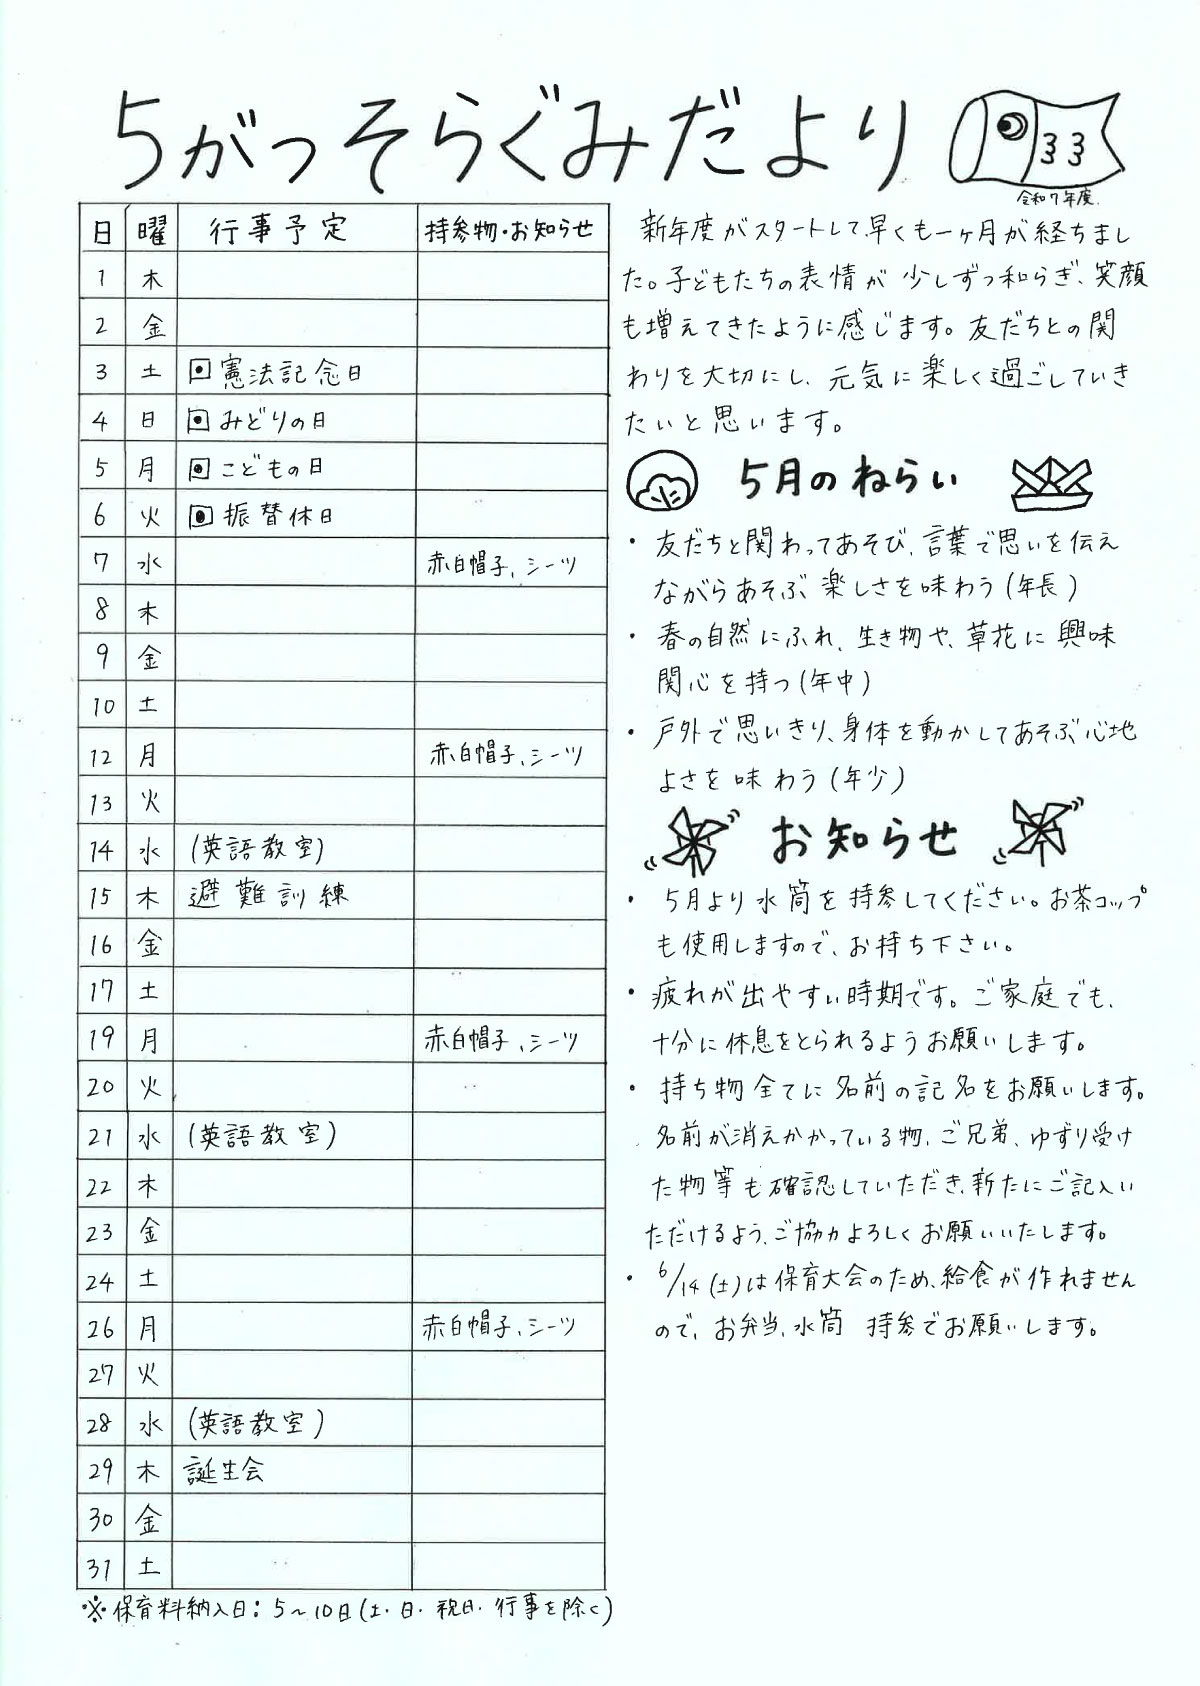 5がつそらぐみだより
33
令和7年度
日 曜 行事予定 持参物・お知らせ
1 木
2 金
3 土 憲法記念日
4 日 みどりの日
5 月 こどもの日
6 火 振替休日
7 水 赤白帽子、シーツ
8 木
9 金
10 土
12 月 赤白帽子、シーツ
13 火
14 水 (英語教室)
15 木 避難訓練
16 金
17 土
19 月 赤白帽子、シーツ
20 火
21 水 (英語教室)
22 木
23 金
24 土
26 月 赤白帽子、シーツ
27 火
28 水 (英語教室)
29 木 誕生会
30 金
31 土
※保育料納入日:5~10日(土・日・祝日・行事を除く)
新年度がスタートして、早くも一ヶ月が経ちまし
た。子どもたちの表情が少しずつ和らぎ、笑顔
も増えてきたように感じます。友だちとの関
わりを大切にし、元気に楽しく過ごしていき
たいと思います。
5月のねらい
・友だちと関わってあそび、言葉で思いを伝え
ながらあそぶ楽しさを味わう(年長)
・春の自然にふれ、生き物や、草花に興味
関心を持つ(年中)
・戸外で思いきり、身体を動かしてあそぶ心地
よさを味わう(年少)
お知らせ
・5月より水筒を持参してください。お茶コップ
も使用しますので、お持ち下さい。
・疲れが出やすい時期です。ご家庭でも、
十分に休息をとられるようお願いします。
・持ち物全てに名前の記名をお願いします。
名前が消えかかっている物、ご兄弟、ゆずり受け
た物等も確認していただき、新たにご記入い
ただけるよう、ご協力よろしくお願いいたします。
・6/14(土)は保育大会のため、給食が作れません
ので、お弁当、水筒 持参でお願いします。